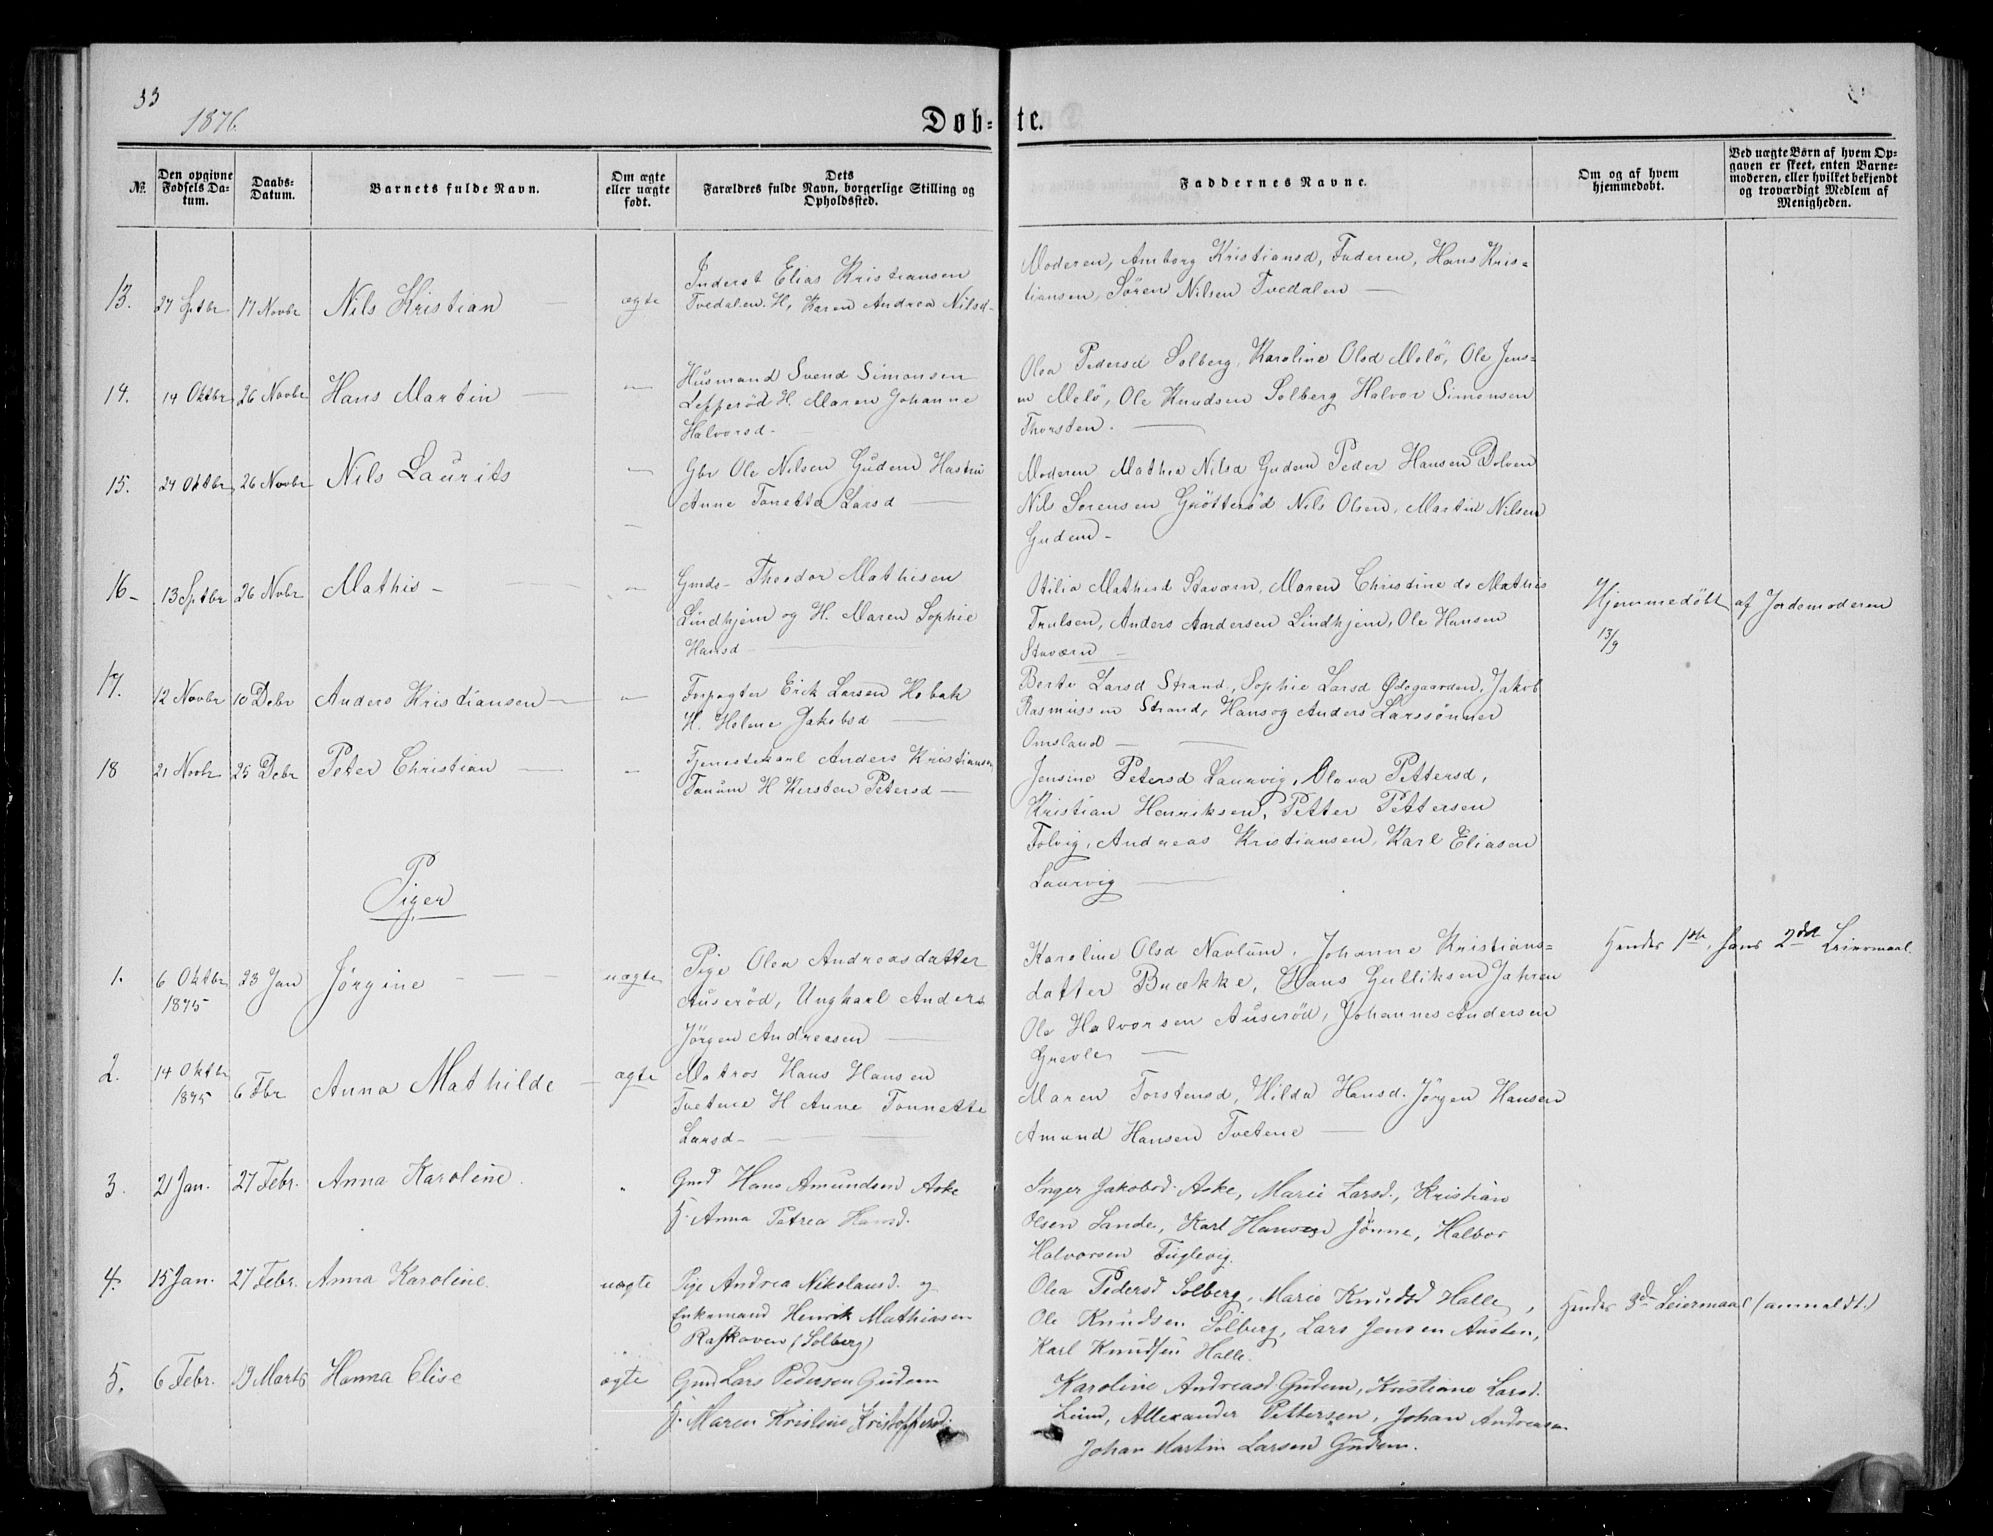 33
1876.
Døb-
te.
No.
Den opgivne Fødsels Datum.
Daabs-Datum.
Barnets fulde Navn.
Om ægte eller uægte født.
Dets Forældres fulde Navn, borgerlige Stilling og Opholdssted.
Faddernes Navne.
Om og af hvem hjemmedøbt.
Ved uægte Børn af hvem Opgaven er skeet, enten Barnemoderen, eller hvilket bekjendt og troværdigt Medlem af Menigheden.
13. 27 Sptbr 17 Novbr Nils Kristian — ægte
Inderst Elias Kristiansen
Tvedalen. H, Karen Andrea Nilsd-
Moderen, Amborg Kristiansd, Faderen, Hans Kris=
tiansen, Søren Nilsen Tvedalen —
14. 14 Oktbr 26 Novbr Hans Martin — —
Husmand Svend Simonsen
Lepperød H. Maren Johanne
Halvorsd-
Olea Pedersd Solberg, Karoline Olsd Melö, Ole Jens=
en Melö, Ole Knudsen Solberg Halvor Simonsen
Thorsten. —
15. 24 Oktbr 26 Novbr Nils Laurits —
Gbr Ole Nilsen Gudem Hustru
Anne Tonetta Larsd —
Moderen Mathea Nilsd Gudem Peder Hansen Dolven
Nils Sørensen Grötteröd Nils Olsen, Martin Nilsen
Gudem-
16- 13 Sptbr 26 Novbr Mathis — —
Gmds- Theodor Mathisen
Lindhjem og H. Maren Sophie
Hansd —
Otilia Mathisd Staværn, Maren Christine ds Mathis
Trulsen, Anders Andersen Lindhjem, Ole Hansen
Staværn —
Hjemmedøbt af Jordemoderen
13/9
17. 12 Novbr 10 Debr Anders Kristiansen — —
Forpagter Erik Larsen Hobæk
H. Helene Jakobsd —
Berte Larsd Strand, Sophie Larsd Ødegaarden, Jakob
Rasmussen Strand, Hans og Anders Larssønner
Omsland —
18 21 Novbr 25 Debr Peter Christian — —
Tjenestekarl Anders Kristiansen
Tanum H Kirsten Petersd —
Jensine Petersd Laurvig, Olava Pettersd,
Kristian Henriksen, Petter Pettersen
Tolvig, Andreas Kristiansen, Karl Eliasen
Laurvig —
Piger
1. 6 Oktbr 1875 23 Jan Jørgine — uægte
Pige Olea Andreasdatter
Auserød, Ungkarl Anders
Jørgen Andreasen —
Karoline Olsd Navlum, Johanne Kristians=
datter Brække, Hans Gulliksen Jahren
Ole Halvorsen Auserød, Johannes Andersen
Grevle —
Hendes 1ste, hans 2det Leiermaal.
2. 14 Oktbr 1875 6 Fbr Anna Mathilde — ægte
Matros Hans Hansen
Tvetene H Anne Tonnette
Larsd- —
Maren Torstensd, Hilda Hansd. Jørgen Hansen
Amund Hansen Tvetene —
3. 21 Jan. 27 Febr. Anna Karoline. "
Gmd Hans Amundsen Aske
H. Anna Petrea Hansd.
Inger Jakobsd. Aske, Marie Larsd., Kristian
Olsen Sande, Karl Hansen Jønne, Halvor
Halvorsen Fuglevig.
4. 15 Jan. 27 Febr. Anna Karoline. uægte
Pige Andrea Nikolaisd. og
Enkemand Henrik Mathiasen
Raskoven (Solberg)
Olea Pedersd Solberg, Marie Knudsd Halle,
Ole Knudsen Solberg, Lars Jensen Austen,
Karl Knudsen Halle.
Hendes 3de Leiermaal (anmeldt.)
5. 6 Febr. 19 Marts Hanna Elise ægte
Gmd Lars Pedersen Gudem
H. Maren Kristine Kristoffersd.
Karoline Andreasd Gudem, Kristiane Larsd.
Lund, Allexander Pettersen, Johan Andreasen
Johan Martin Larsen Gudem.